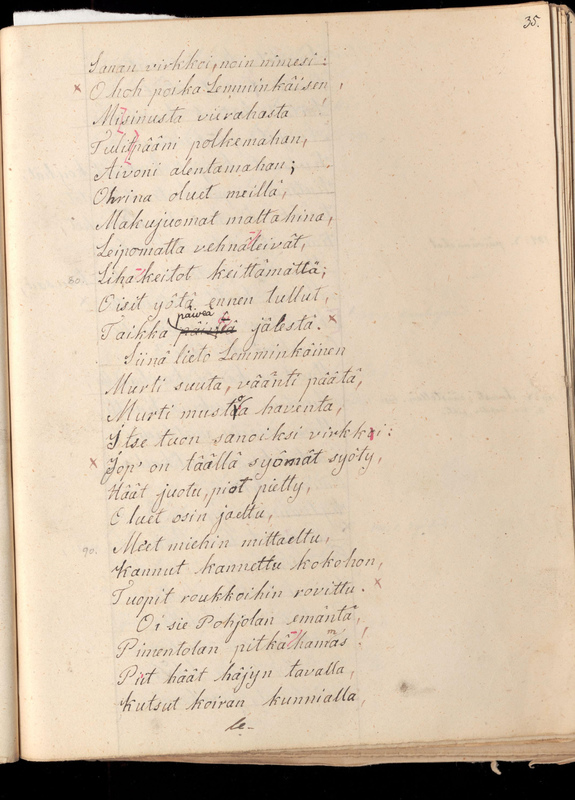 35.
Sanan virkkoi, noin nimesi:
Ohoh poika Lemminkäisen,
Mi sinusta vierahasta!
Tulit pääni polkemahan,
Aivoni alentamahan;
Ohrina oluet meillä,
Makujuomat mattahina,
Leipomatta vehnäleivät,
Lihakeitot keittämättä;
80.
Oisit yötä ennen tullut,
päiveä
Taikka päiveä jälestä.
Siinä lieto Lemminkäinen
Murti suuta, väänti päätä,
Murti mustoa haventa,
Itse tuon sanoiksi virkki:
Jop' on täällä syömät syöty,
Häät juotu, piot pietty,
Oluet osin jaettu,
90.
Meet miehin mittaeltu,
Kannut kannettu kokohon,
Tuopit roukkoihin rovittu.
Oi sie Pohjolan emäntä,
Pimentolan pitkähammas!
Pit häät häjyn tavalla,
Kutsut koiran kunnialla,